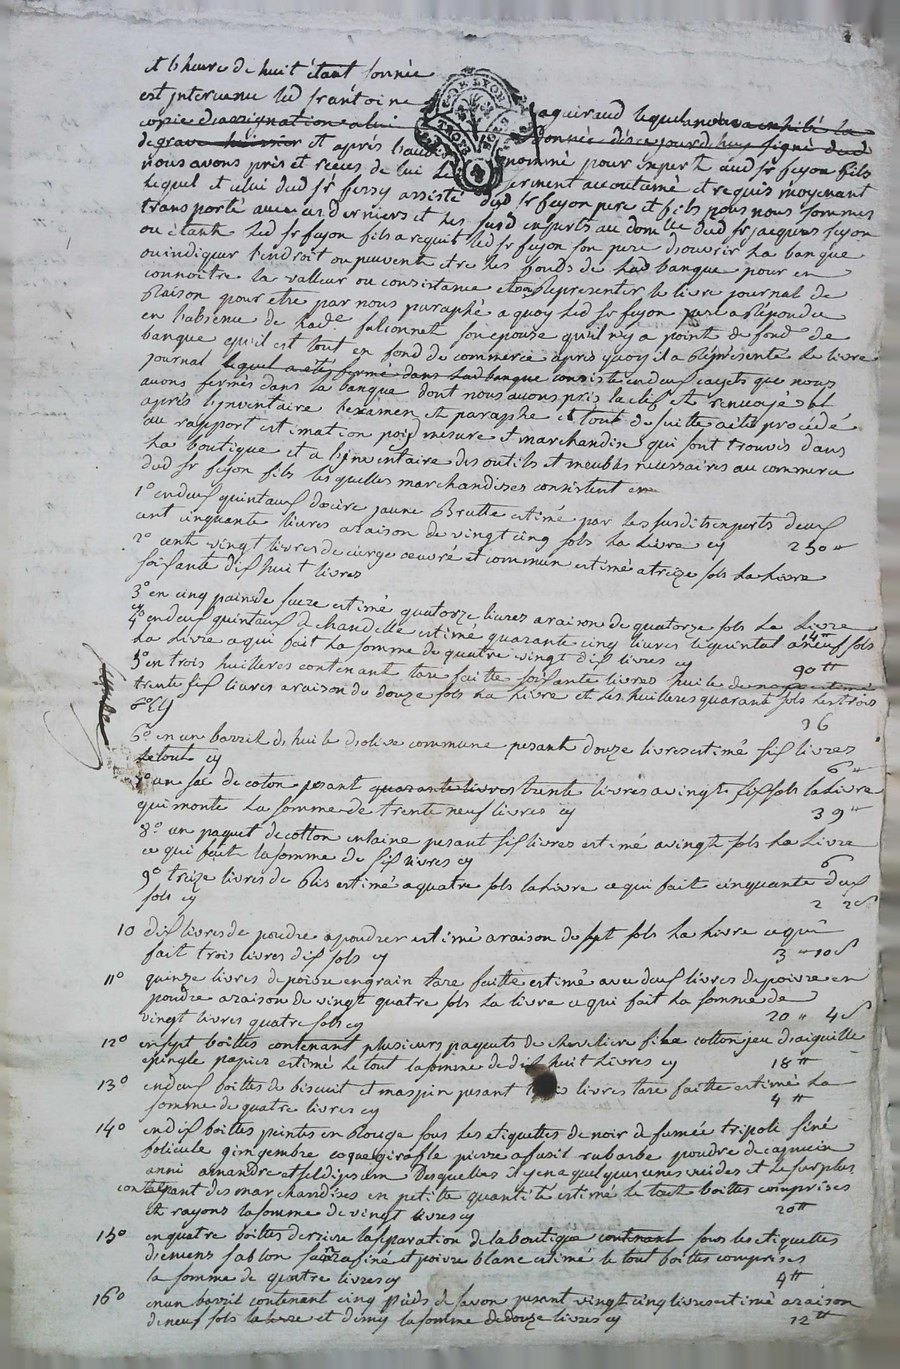 et l'heure de huit étant sonnée
est intervenu led sr antoine
copie d'assignation a lui jaquiraud lequel nous a exhibé la
degrave huissier et apres donnée disce jourdhuy signé dud
nous avons pris et recus de lui le nommé pour expert aud sr feyon fils
lequel et celui dud sr fessy assisté serment accoutumé et requis moyenant
transporté avec ces derniers et les dud sr feyon pere et fils nous nous sommes
ou étant led sr feyon fils a requit susd experts au domlle dud sr jacques feyon
ou indiquer l'endroit ou peuvent etre led sr feyon son pere d'ouvrir la banque
connoitre la valleur ou consistance les fonds de lad banque pour en
raison pour etre par nous paraphé et representer le livre journal de
en l'absence de lade falconnet a quoy led sr feyon pere a repondu
banque qu'il est tout en son epouse qu'il n'y a point de fond de
journal lequel a eté fermé dans fond de commerce apres quoy il a représenté le livre
avons fermés dans la banque lad banque consiste en deux cayets que nous
après l'inventaire l'examen dont nous avons pris la clef et renvoyé
au rapport estimation poid et paraphe et tout de suitte a été procédé
la boutique et a l'inventaire mesure et marchandises qui sont trouvés dans
dud sr feyon fils lesquelles des outils et meubles necessaires au commerce
marchandises consistent en
1° en deux quintaux de cire jaune Brutte estimé par les susdits experts deux
cent cinquante livres a raison de vingt cinq sols la livre cy 250 ₶
2° cente vingt livres de cierge oeuvré et commun estimé a treize sols la livre
soissante dix huit livres
3° en cinq pains de sucre estimé quatorze livres a raison de quatorze sols la livre
cy 14 ₶
4° en deux quintaux de chandelle estimé quarante cinq livres le quintal a neuf sols
la livre a qui fait la somme de quatre vingt dix livres cy 90 ₶
5° en trois huilleres contenant tare faitte soissante livres huile de
trente six livres a raison de douze sols la livre et les huilleres quarante sols les trois
cy 36
6° en un barril d'huile d'olive commune pesant douze livres estimé six livres
le tout cy 6 ₶
7° un sac de coton pesant quarante livres trente livres a vingt six sols la livre
qui monte la somme de trente neuf livres cy 39 ₶
8° un paquet de cotton en laine pesant six livres estimé a vingt sols la livre
ce qui fait la somme de six livres cy 6
9° treize livres de Ris estimé a quatre sols la livre ce qui fait cinquante deux
sols cy 2 12 s
10 dix livres de poudre a poudrer estimé a raison de sept sols la livre ce qui
fait trois livres dix sols cy 3 " 10 s
11° quinze livres de poivre en grain tare faitte estimé avec deux livres de poivre en
poudre a raison de vingt quatre sols la livre ce qui fait la somme de
vingt livres quatre sols cy 20 " 4 s
12° en sept boittes contenant plusieurs paquets de chevillere file cotton jeu d'aiguille
epingle papier estimé le tout la somme de dix huit livres cy 18 ₶
13° en deux boittes de biscuit et maspin pesant livres tare faitte estimé la
somme de quatre livres cy 4 ₶
14° en dix boittes peintes en Rouge sous les etiquettes de noir de fumée tripoli siné
folicule gingembre coque girofle pierre a fusil rubarbe poudre
anni amandre et sel d'epsem Desquelles il y en a quelques unes vuides et le surplus
contenant des marchandises en petitte quantité estimé le tout boittes comprises
et rayons la somme de vingt livres cy 20 ₶
15° en quatre boittes derriere la separation de la boutique contenant sous les etiquettes
d'encens sablon rafiné et poivre blanc estimé le tout boittes comprises
la somme de quatre livres cy 4 ₶
16° en un barril contenant cinq pieds de savon pesant vingt cinq livres estimé a raison
de neuf sols la livre et demy la somme de douze livres cy 12 ₶